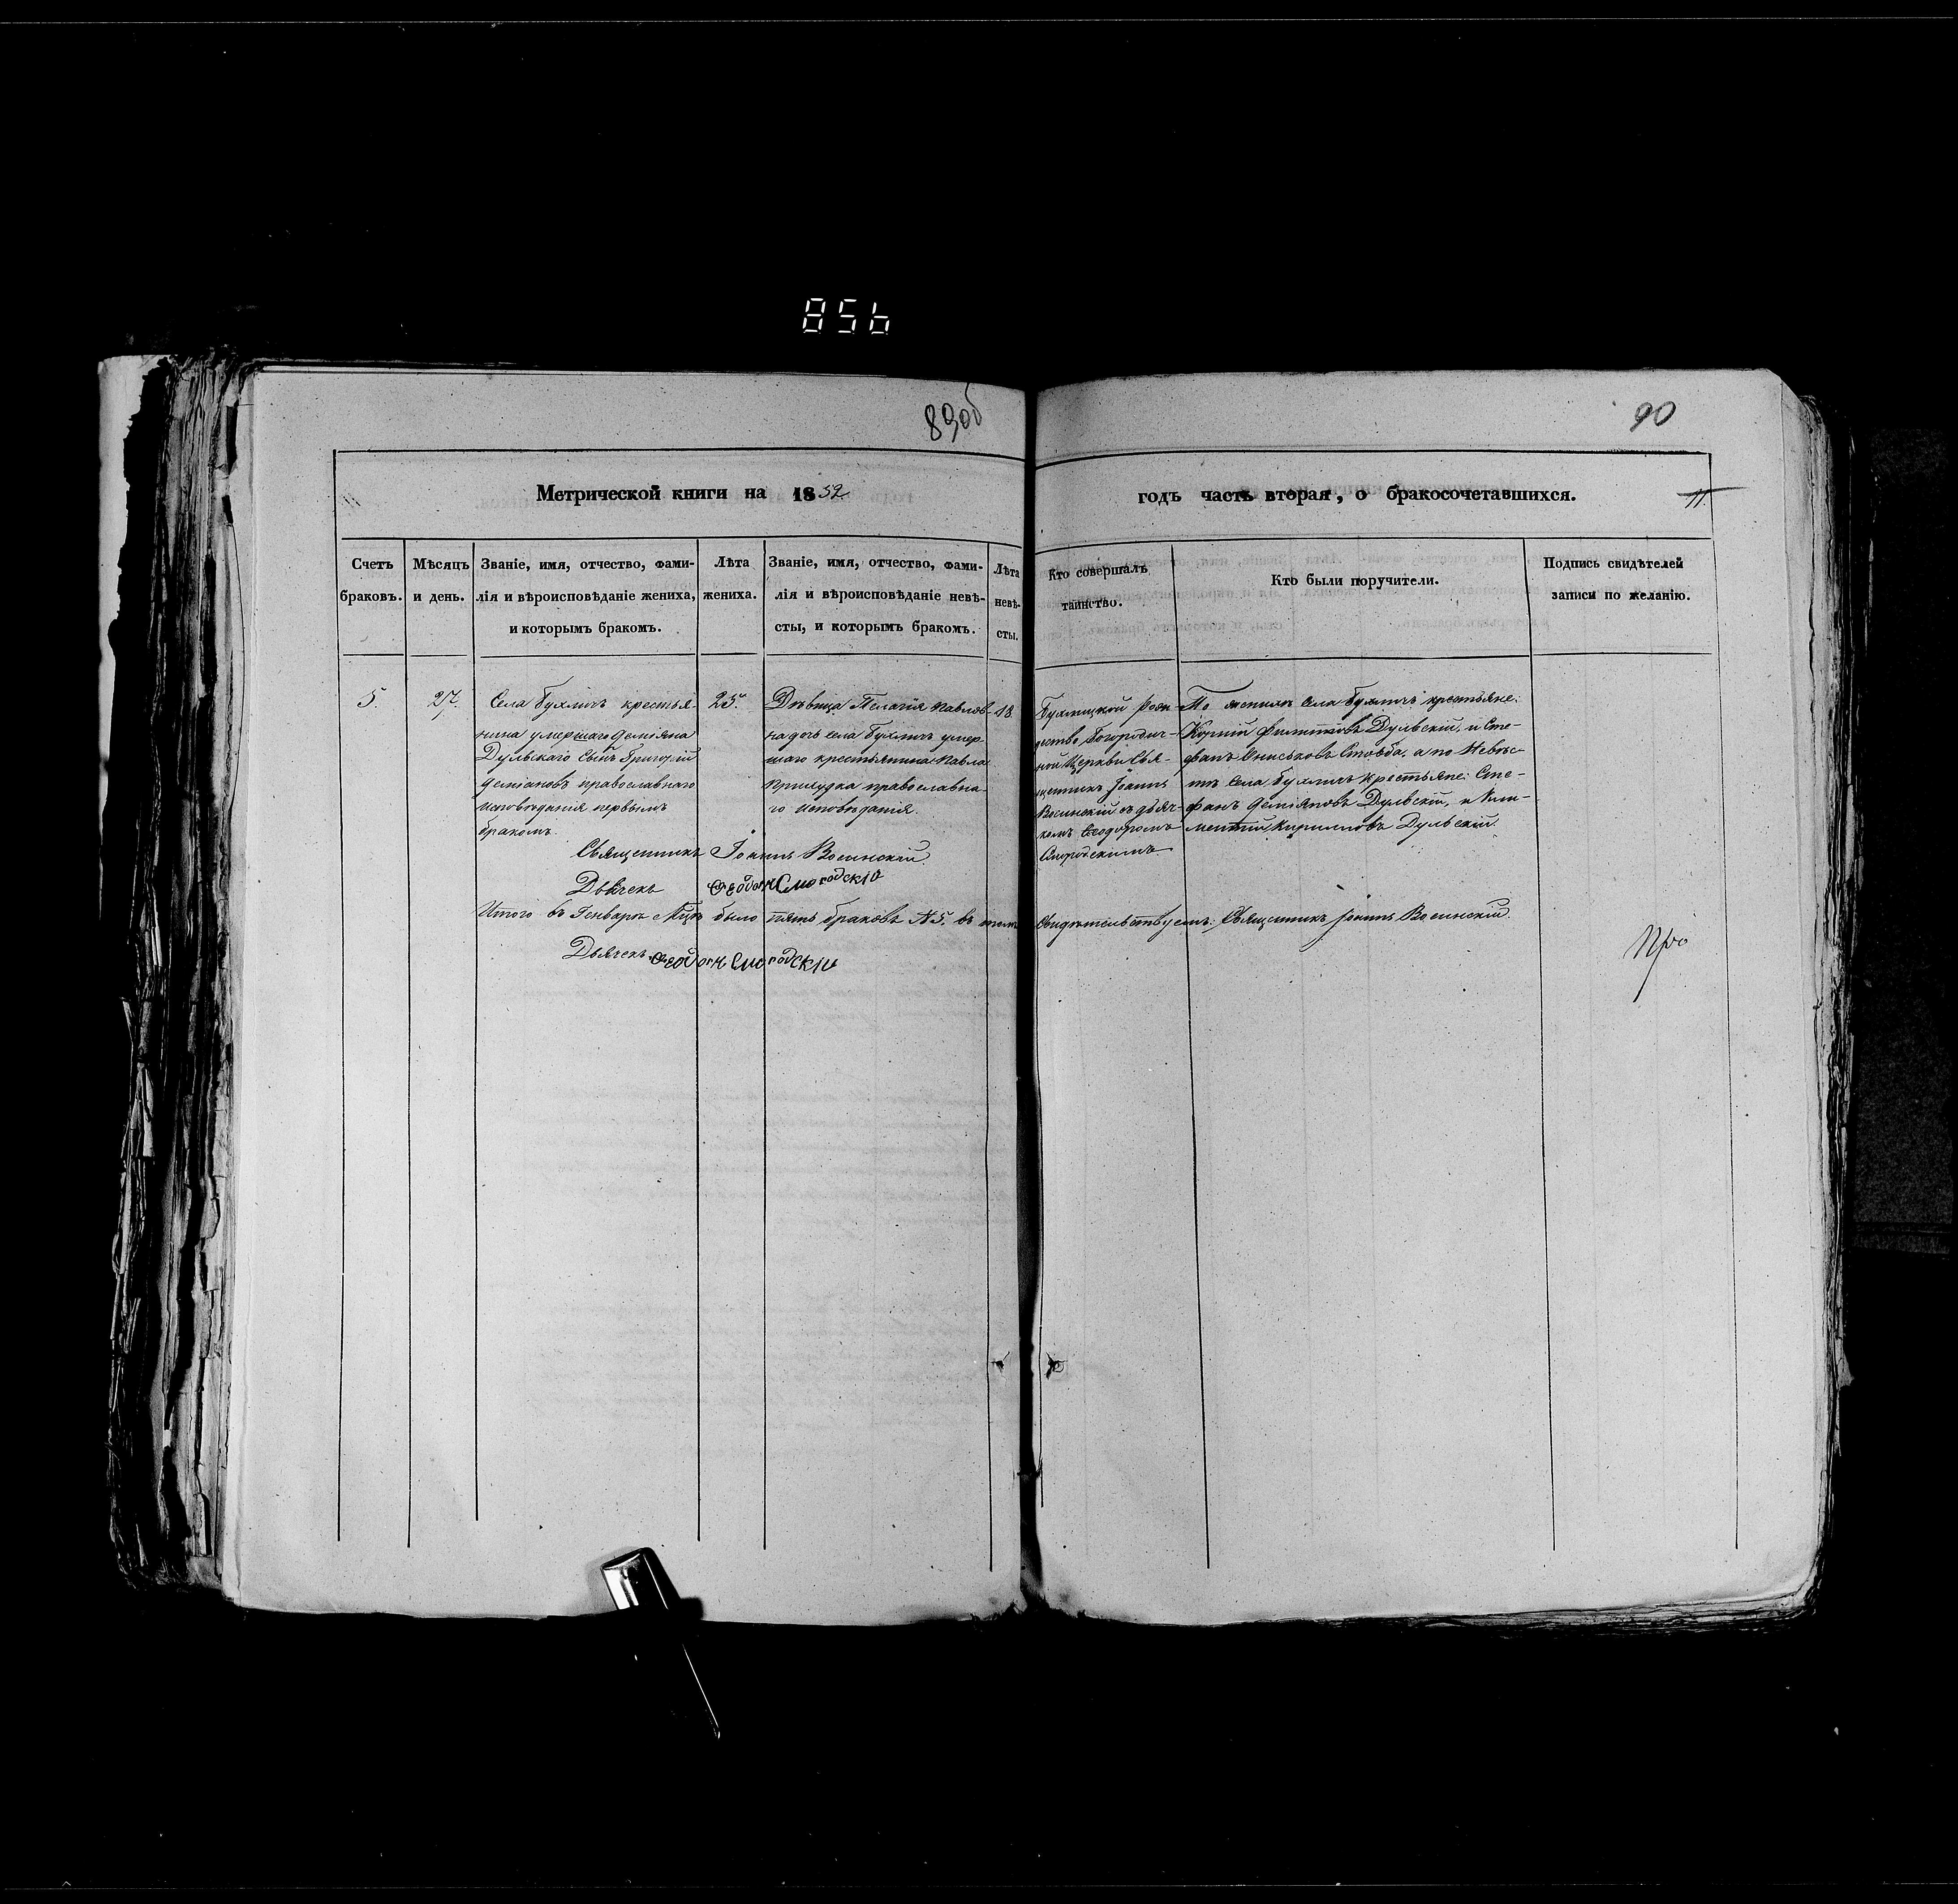 856
89об
90
Метрической книги на 1852
годъ часть вторая, о бракосочетавшихся.
11.
Счетъ
браковъ.
Мѣсяцъ
и день.
Званіе, имя, отчество, фами-
лія и вѣроисповѣданіе жениха,
и которымъ бракомъ.
Лѣта
жениха.
Званіе, имя, отчество, фами-
лія и вѣроисповѣданіе невѣ-
сты, и которымъ бракомъ.
Лѣта
невѣ-
сты.
Кто совершалъ
таинство.
Кто были поручители.
Подпись свидѣтелей
записи по желанію.
5.
27.
Села Бухличъ крестья-
нина умершаго Деміяна
Дульскаго сынъ Григорій
Деміановъ православнаго
исповѣданія первымъ
бракомъ.
25.
Дѣвица Пелагія Павлов-
на дочь села Бухличъ умер
шаго крестьянина Павла
православна-
го исповѣданія.
18.
Бухлицкой Рож-
дество Богородич-
ной Церкви Свя-
щенникъ Іоаннъ
Восинскій съ дьяч-
комъ Ѳеодоромъ
Смородскимъ.
По женихѣ села Бухличъ крестьяне:
Корній Дульскій, и Сте-
фанъ Столба, а по Невѣс-
тѣ села Бухличъ крестьяне: Сте-
фанъ Деміяновъ Дульскій, и Кли-
ментій Кириловъ Дульскій.
Священникъ Іоаннъ Восинскій
Дьячекъ Ѳеодоръ Смородскій
Итого въ Генварѣ было пять браковъ №5. въ томъ
свидѣтельствуемъ: Священникъ Іоаннъ Восинскій.
Дьячекъ Ѳеодоръ Смородскій